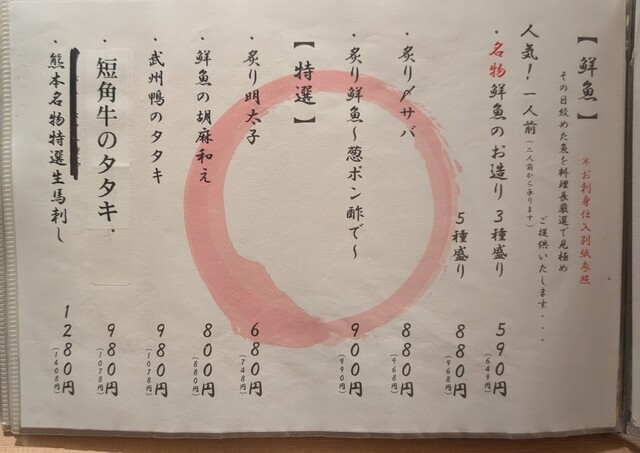 【鮮魚】
※お刺身仕入別紙参照
その日絞めた魚を料理長厳選で見極め
ご提供いたします・・・
人気!一人前(二人前から承ります)
・名物鮮魚のお造り 3種盛り 590円(649円)
5種盛り 880円(968円)
・炙り〆サバ 880円(968円)
・炙り鮮魚~葱ポン酢で~ 900円(990円)
【特選】
・炙り明太子 680円(748円)
・鮮魚の胡麻和え 800円(880円)
・武州鴨のタタキ 980円(1078円)
・短角牛のタタキ. 980円(1078円)
・熊本名物特選生馬刺し 1280円(1408円)